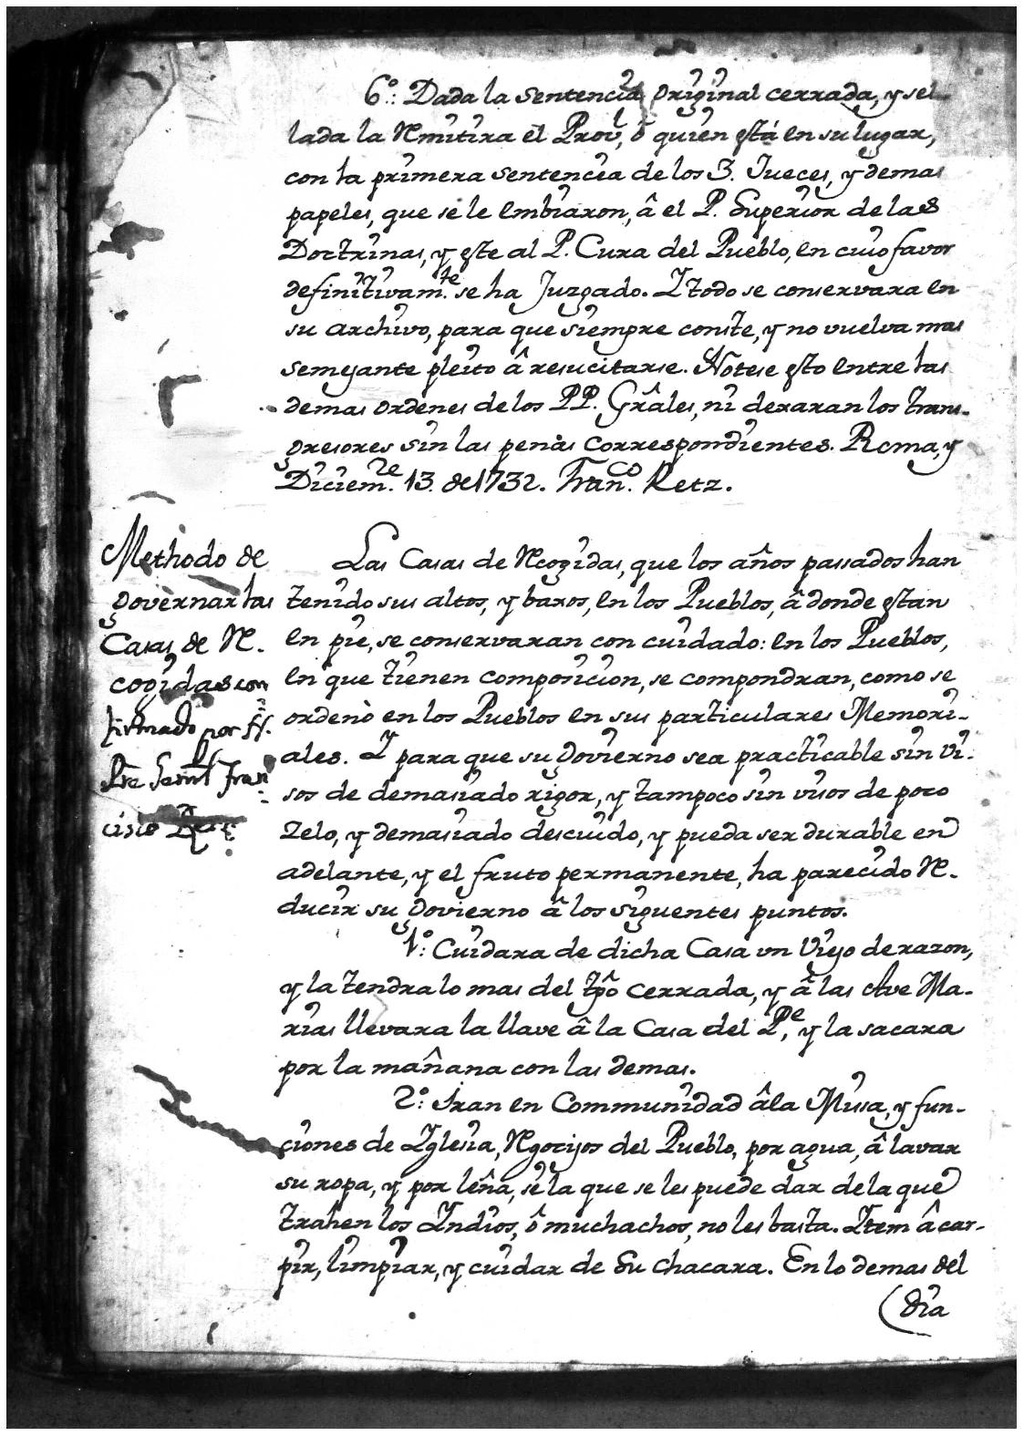 6º: Dada la sentencia original cerrada, y sel-
lada la Rmitira el Provl, ô quien está en su lugar,
con la primera sentencia de los 3. Jueces, y demas
papeles, que se le embiaron, â el P. Superior de las
Doctrinas, y este al P. Cura del Pueblo, en cuio favor
definitivamte. se ha Juzgado. Y todo se conservara en
su archivo, para que siempre conste, y no vuelva mas
semejante pleito â resucitarse. Notese esto entre las
demas ordenes de los PP. Grâles, ni dexaran los trans-
gresores sin las penas correspondientes. Roma, y
Diciemre. 13. de 1732. Franco. Retz.
Methodo de
governar las
Casas de R.
cogidas con
firmado por N.
Pre Genrl Fran
cisco Retz
Las Casas de Rcogidas, que los años passados han
tenido sus altos, y baxos, en los Pueblos, â donde estan
en pie, se conservaran con cuidado: en los Pueblos,
en que tienen composicion, se compondran, como se
ordenò en los Pueblos en sus particulares Memori-
ales. Y para que su Govierno sea practicable sin vi-
sos de demasiado rigor, y tampoco sin visos de poco
zelo, y demasiado descuido, y pueda ser durable en
adelante, y el fruto permanente, ha parecido R.
ducir su Govierno â los siguentes puntos.
1º: Cuidara de dicha Casa un Viejo de razon,
y la tendra lo mas del tpô cerrada, y â las Ave Ma-
rias llevara la llave â la Casa del Pe, y la sacara
por la mañana con las demas.
2º: Iran en Communidad âla Missa, y fun-
ciones de Yglesia, Rgocijos del Pueblo, por agua, â lavar
su ropa, y por leña, se la que se les puede dar de la que
trahen los Yndios, ô muchachos, no les basta. Ytem â car-
pir, limpiar, y cuidar de su chacara. En lo demas del
(dia